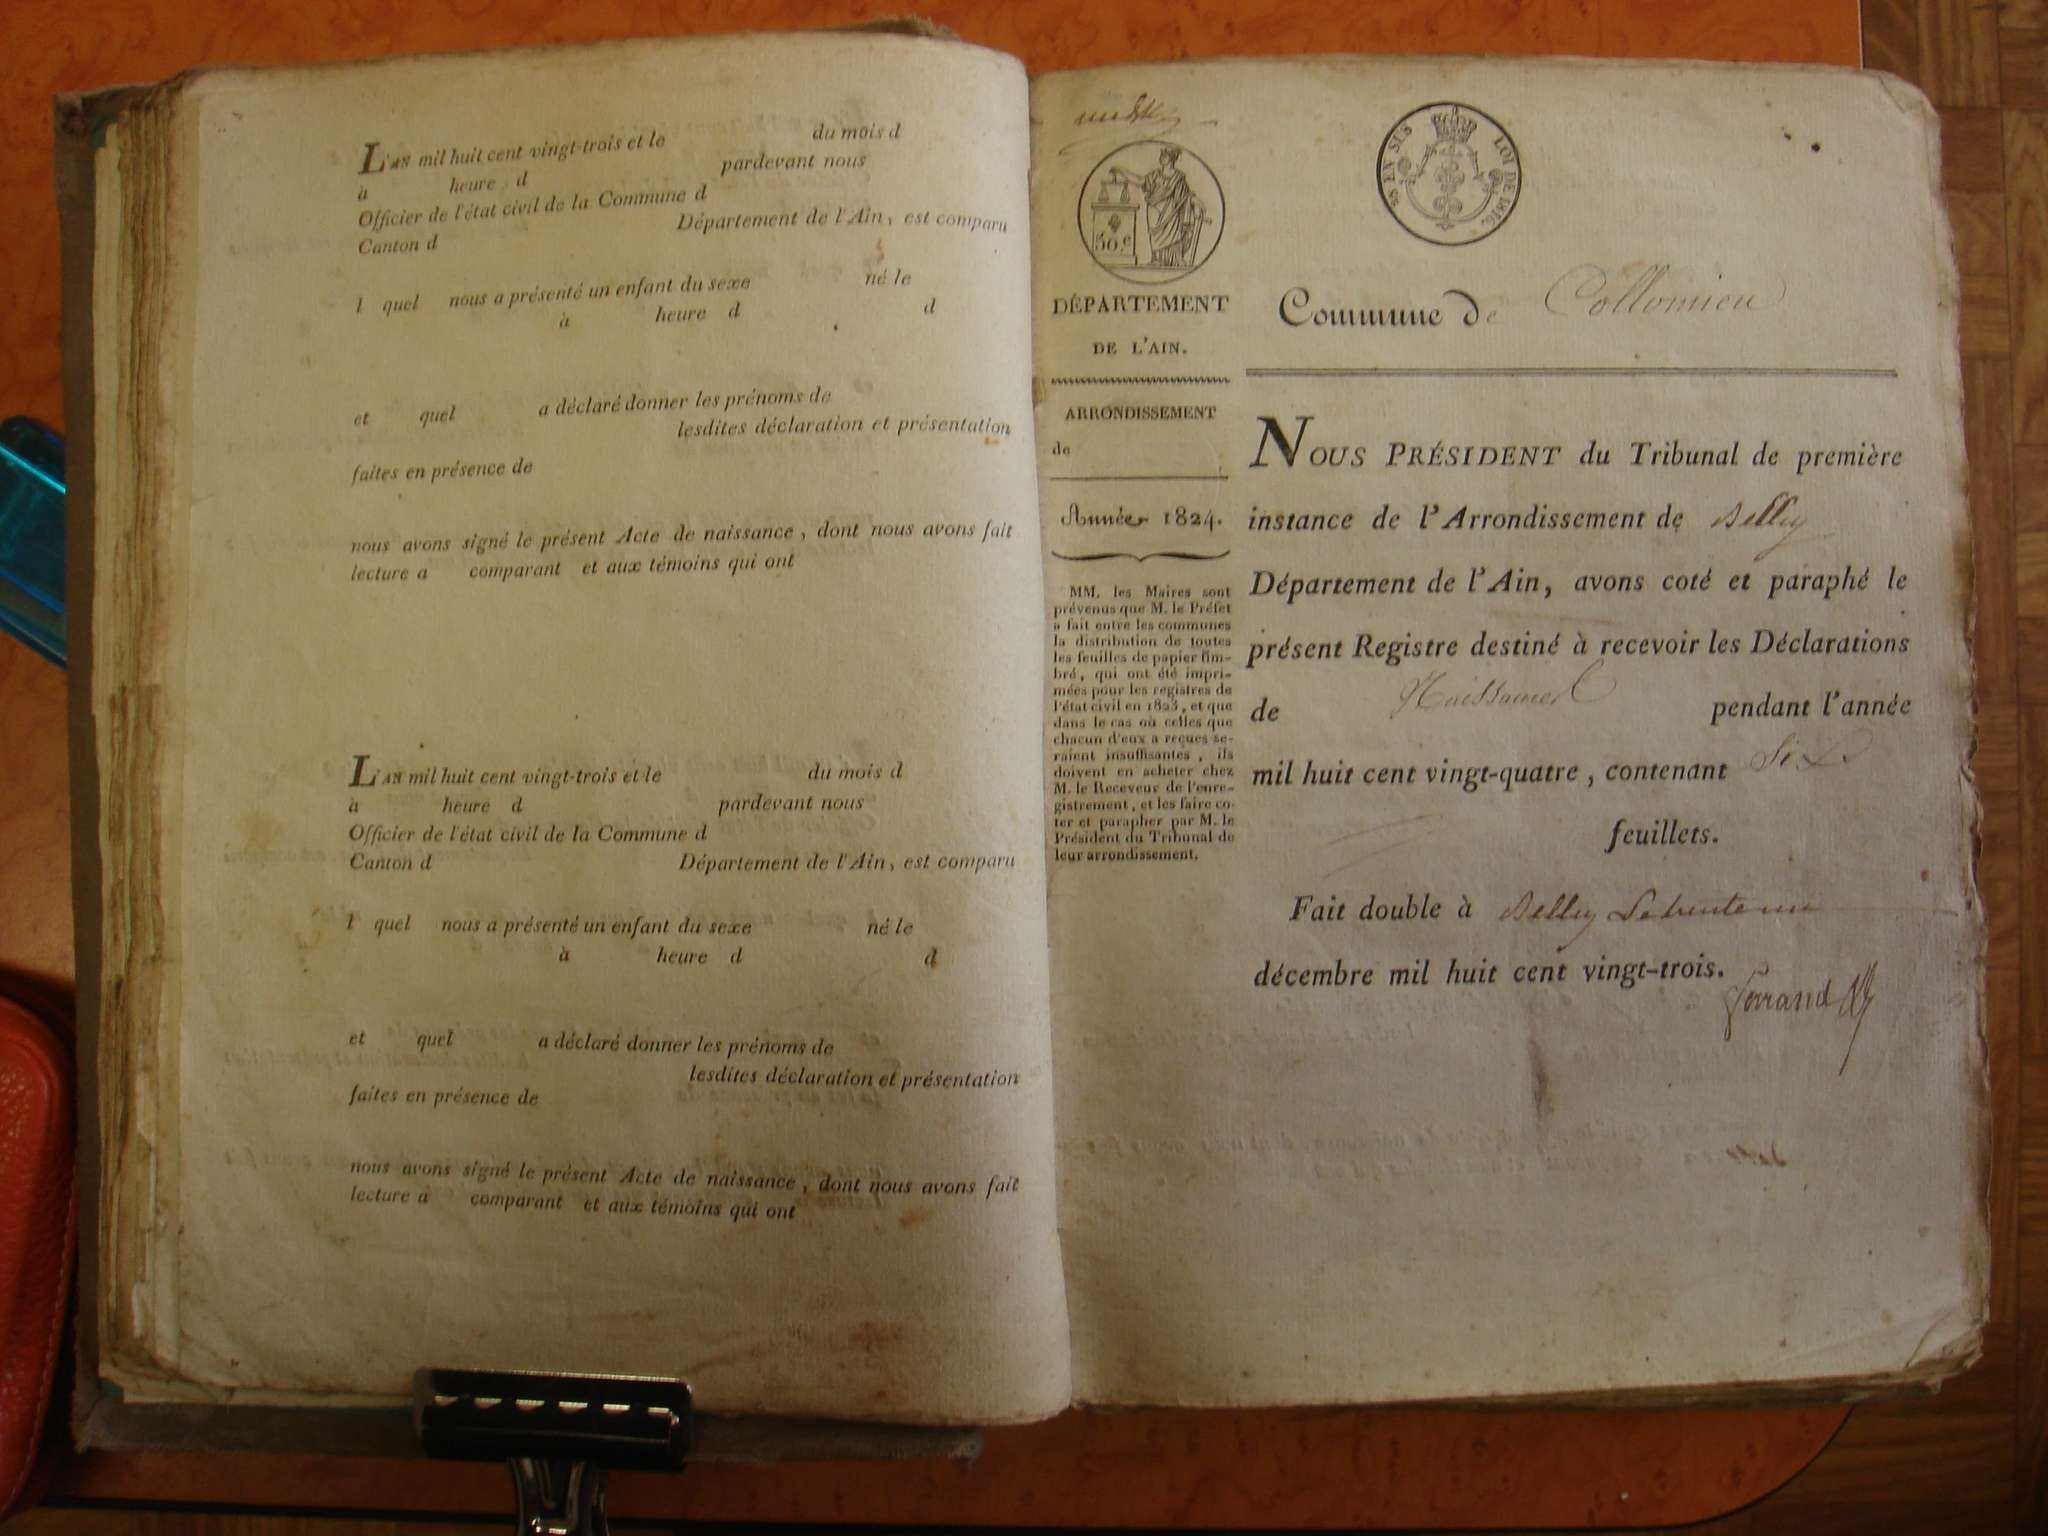 L'AN mil huit cent vingt-trois et le du mois d
à heure d pardevant nous
Officier de l'état civil de la Commune d
Canton d Département de l'Ain, est comparu
l quel nous a présenté un enfant du sexe né le
à heure d d
et quel a déclaré donner les prénoms de
lesdites déclaration et présentation
faites en présence de
nous avons signé le présent Acte de naissance, dont nous avons fait
lecture a comparant et aux témoins qui ont
L'AN mil huit cent vingt-trois et le du mois d
à heure d pardevant nous
Officier de l'état civil de la Commune d
Canton d Département de l'Ain, est comparu
l quel nous a présenté un enfant du sexe né le
à heure d d
et quel a déclaré donner les prénoms de
lesdites déclaration et présentation
faites en présence de
nous avons signé le présent Acte de naissance, dont nous avons fait
lecture a comparant et aux témoins qui ont
50.c
DÉPARTEMENT
DE L'AIN.
ARRONDISSEMENT
de
Année 1824.
MM. les Maires sont
prévenus que M. le Préfet
a fait entre les communes
la distribution de toutes
les feuilles de papier tim-
bré, qui ont été impri-
mées pour les registres de
l'état civil en 1823, et que
dans le cas où celles que
chacun d'eux a reçues se-
raient insuffisantes, ils
doivent en acheter chez
M. le Receveur de l'enre-
gistrement, et les faire co-
ter et parapher par M. le
Président du Tribunal de
leur arrondissement.
EN SUS LOI DE 1816.
Commune de Collomieu
NOUS PRÉSIDENT du Tribunal de première
instance de l'Arrondissement de Belley
Département de l'Ain, avons coté et paraphé le
présent Registre destiné à recevoir les Déclarations
de Naissances pendant l'année
mil huit cent vingt-quatre, contenant Six
feuillets.
Fait double à Belley Le trente un
décembre mil huit cent vingt-trois.
Ferrand